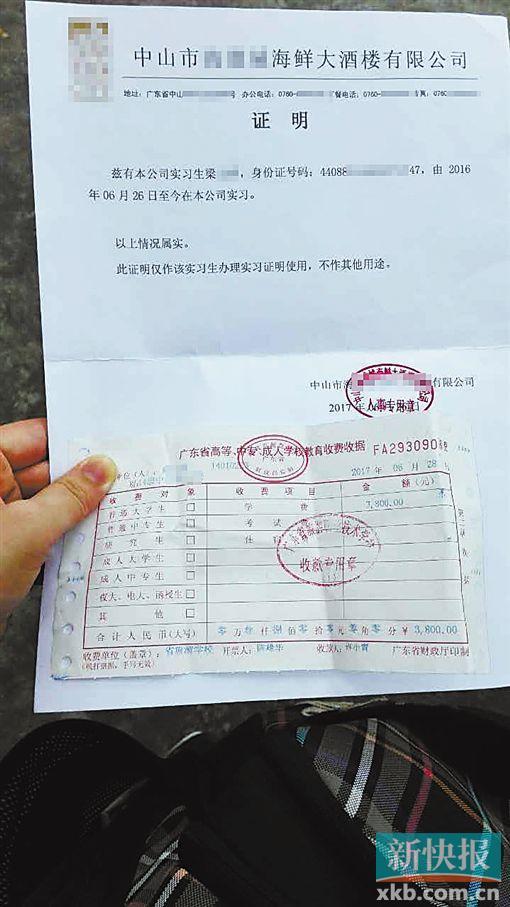 中山市 海鲜大酒楼有限公司
地址：广东省中山 号 办公电话：0760- 餐电话：0760- 传真：0760
证 明
兹有本公司实习生梁 ，身份证号码：44088 47，由 2016
年 06 月 26 日至今在本公司实习。
以上情况属实。
此证明仅作该实习生办理实习证明使用，不作其他用途。
中山市海 有限公司
2017 年
人事专用章
广东省高等、中专、成人学校教育收费收据 FA293090
2017 年 06 月 28
收 费 对 象 收 费 项 目 金 额（元）
普通大学生 学 费 3,800.00
普通中专生 考 试
研 究 生 住
成人大学生
成人中专生
夜大、电大、函授生
其 他
收款专用章
合计人民币（大写） 零 万 仟 捌 佰 零 拾 零 元 零 角 零 分 ￥3,800.00
收费单位（盖章）： 省旅游学校 开票人： 收款人： 广东省财政厅印制
新快报
xkb.com.cn